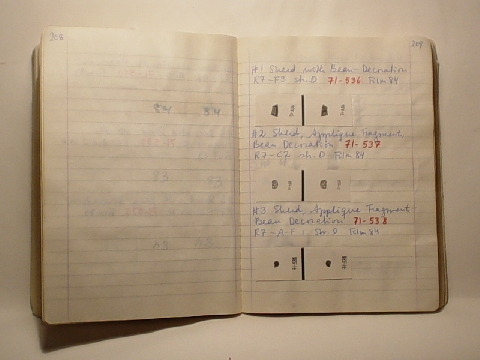 208
209
#1 Sherd with Bean Decoration
R7-F3 sh.D 71-536 Rlm 84
#2 Sherd, Applique Fragment
Bean Decoration 71-537
R7-C2 sh.D Rlm 84
#3 Sherd, Applique Fragment
Bean Decoration 71-538
R7-A-F sh.D Rlm 84